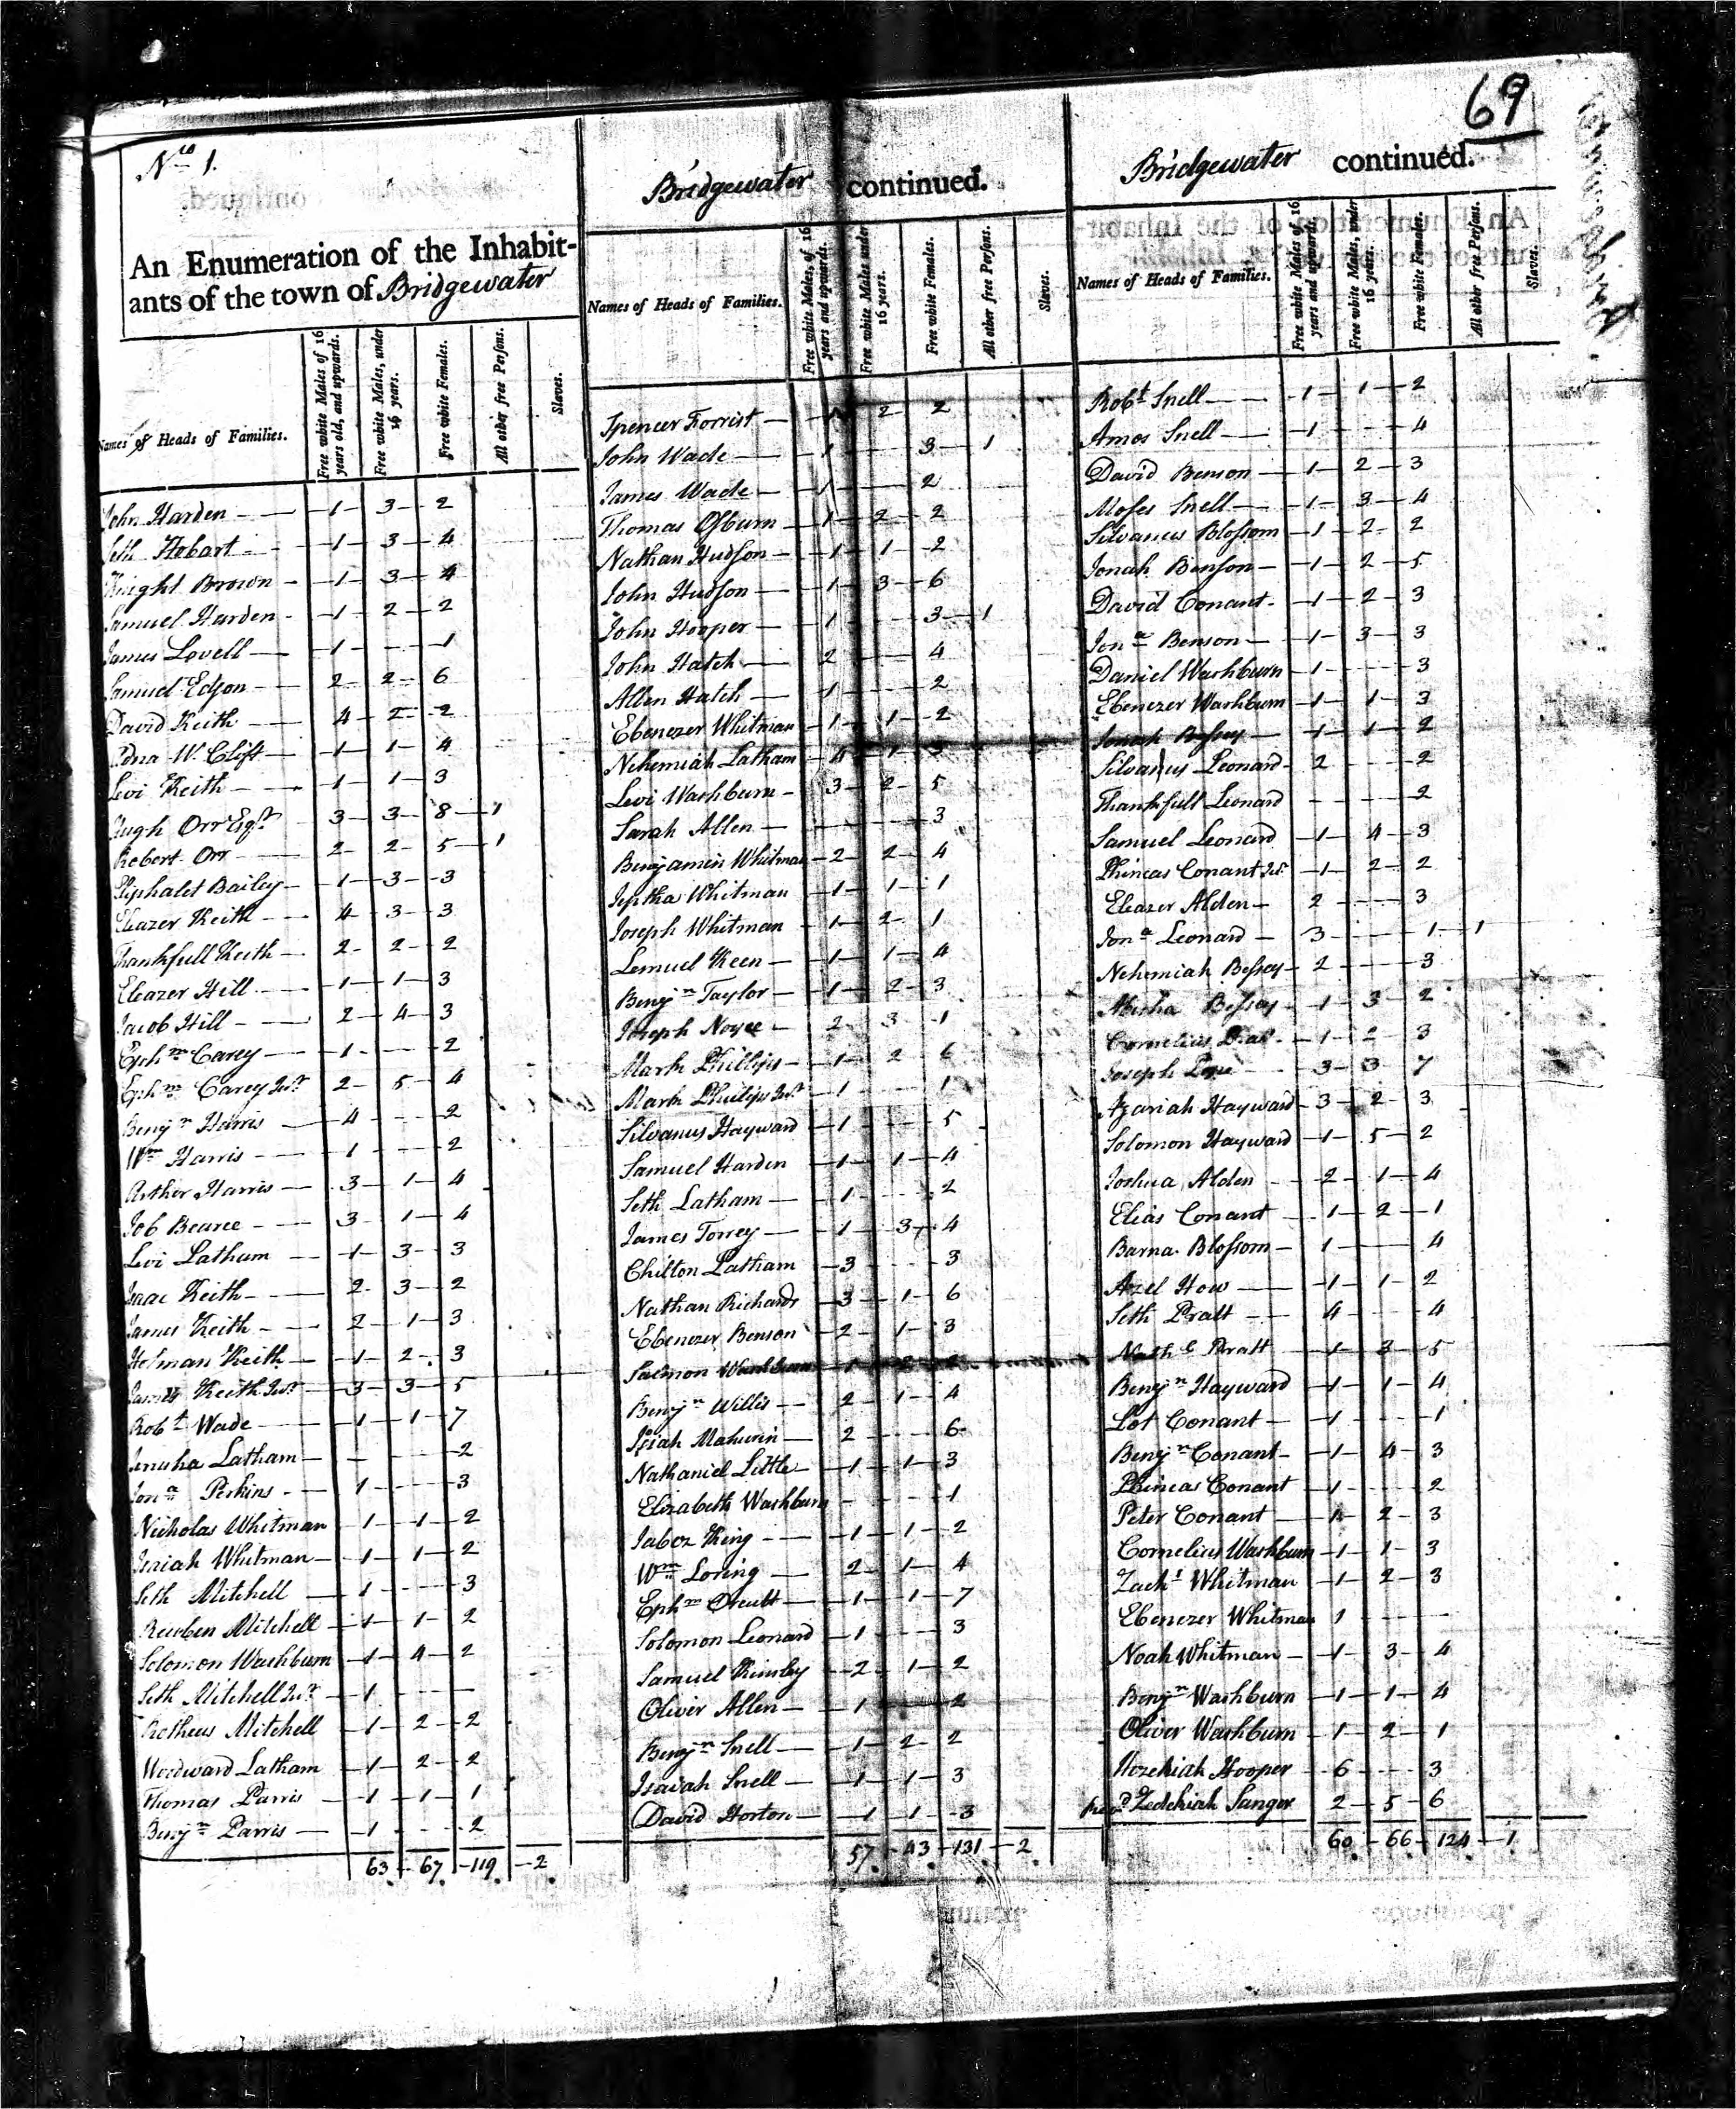 69
No 1.
An Enumeration of the Inhabit-
ants of the town of Bridgewater
Names of Heads of Families.
Free white Males of 16 years old, and upwards.
Free white Males, under 16 years.
Free white Females.
All other free Persons.
Slaves.
John Harden 1 3 2
Seth Hobart 1 3 4
Knight Brown 1 3 4
Samuel Harden 1 2 2
James Lovell 1 1
Samuel Edson 2 2 6
David Keith 4 2 2
W. Clift 1 1 4
Levi Keith 1 1 3
Hugh Orr Esqr 3 3 8 1
Robert Orr 2 2 5 1
Eliphalet Bailey 1 3 3
Eleazer Keith 4 3 3
Thankfull Keith 2 2 2
Eleazer Hill 1 1 3
Jacob Hill 2 4 3
Ephm Carey 1 2
Ephm Carey Junr 2 5 4
Benjn Harris 4 2
Wm Harris 1 2
Arthor Harris 3 1 4
Job Bearce 3 1 4
Levi Latham 1 3 3
Isaac Keith 2 3 2
James Keith 2 1 3
Holman Keith 1 2 3
James Keith Junr 3 3 5
Robt Wade 1 1 7
Jenusha Latham 2
Jona Perkins 1 3
Nicholas Whitman 1 1 2
Josiah Whitman 1 1 2
Seth Mitchell 1 3
Reuben Mitchell 1 1 2
Solomon Washburn 1 4 2
Seth Mitchell Junr 1
Rotheus Mitchell 1 2 2
Woodward Latham 1 2 2
Thomas Parris 1 1 1
Benjn Parris 1 2
63 67 119 2
Bridgewater continued.
Names of Heads of Families.
Free white Males, of 16 years and upwards.
Free white Males under 16 years.
Free white Females.
All other free Persons.
Slaves.
Spencer Forrist 1 2 2
John Wade 1 3 1
James Wade 1 2
Thomas Osburn 1 2 2
Nathan Hudson 1 1 2
John Hudson 1 3 6
John Hooper 1 3 1
John Hatch 2 4
Allen Hatch 1 2
Ebenezer Whitman 1 1 2
Nehemiah Latham 4 1 3
Levi Washburn 3 2 5
Sarah Allen 3
Benjamin Whitman 2 2 4
Jeptha Whitman 1 1 1
Joseph Whitman 1 2 1
Lemuel Keen 1 1 4
Benjn Taylor 1 2 3
Joseph Noyce 2 3 1
Mark Phillips 1 2 6
Mark Phillips Junr 1 1
Silvanus Hayward 1 5
Samuel Harden 1 1 4
Seth Latham 1 2
James Torrey 1 3 4
Chilton Latham 3 3
Nathan Richards 3 1 6
Ebenezer Benson 2 1 3
Salmon Washburn 1 2
Benjn Willis 2 1 4
Isiah Mahurin 2 6
Nathaniel Little 1 1 3
Elizabeth Washburn 1
Jabez King 1 1 2
Wm Loring 2 1 4
Ephm Orcutt 1 1 7
Solomon Leonard 1 3
Samuel Kinsley 2 1 2
Oliver Allen 1 2
Benjn Snell 1 2 2
Isaiah Snell 1 1 3
David Horton 1 1 3
57 43 131 2
Bridgewater continued.
Names of Heads of Families.
Free white Males of 16 years and upwards
Free white Males, under 16 years.
Free white Females.
All other free Persons.
Slaves.
Robt Snell 1 1 2
Amos Snell 1 4
David Benson 1 2 3
Moses Snell 1 3 4
Silvanus Blossom 1 2 2
Jonah Benson 1 2 5
David Conant 1 2 3
Jona Benson 1 3 3
Daniel Washburn 1 3
Ebenezer Washburn 1 1 3
Jonah Bessey 1 1 2
Silvanus Leonard 2 2
Thankfull Leonard 2
Samuel Leonard 1 4 3
Phineas Conant Jur 1 2 2
Eleazer Alden 2 3
Jona Leonard 3 1 1
Nehemiah Bessey 2 3
Bessey 1 3 2
Cornelius 1 2 3
Joseph 3 3 7
Azariah Hayward 3 2 3
Solomon Hayward 1 5 2
Joshua Alden 2 1 4
Elias Conant 1 2 1
Barna. Blossom 1 4
Azel How 1 1 2
Seth Pratt 4 4
Nathl Pratt 1 3 5
Benjn Hayward 1 1 4
Lot Conant 1 1
Benjn Conant 1 4 3
Phineas Conant 1 2
Peter Conant 1 2 3
Cornelius Washburn 1 1 3
Zachs Whitman 1 2 3
Ebenezer Whitman 1
Noah Whitman 1 3 4
Benjn Washburn 1 1 4
Oliver Washburn 1 2 1
Hezekiah Hooper 6 3
Revd Zedekiah Sanger 2 5 6
60 66 124 1